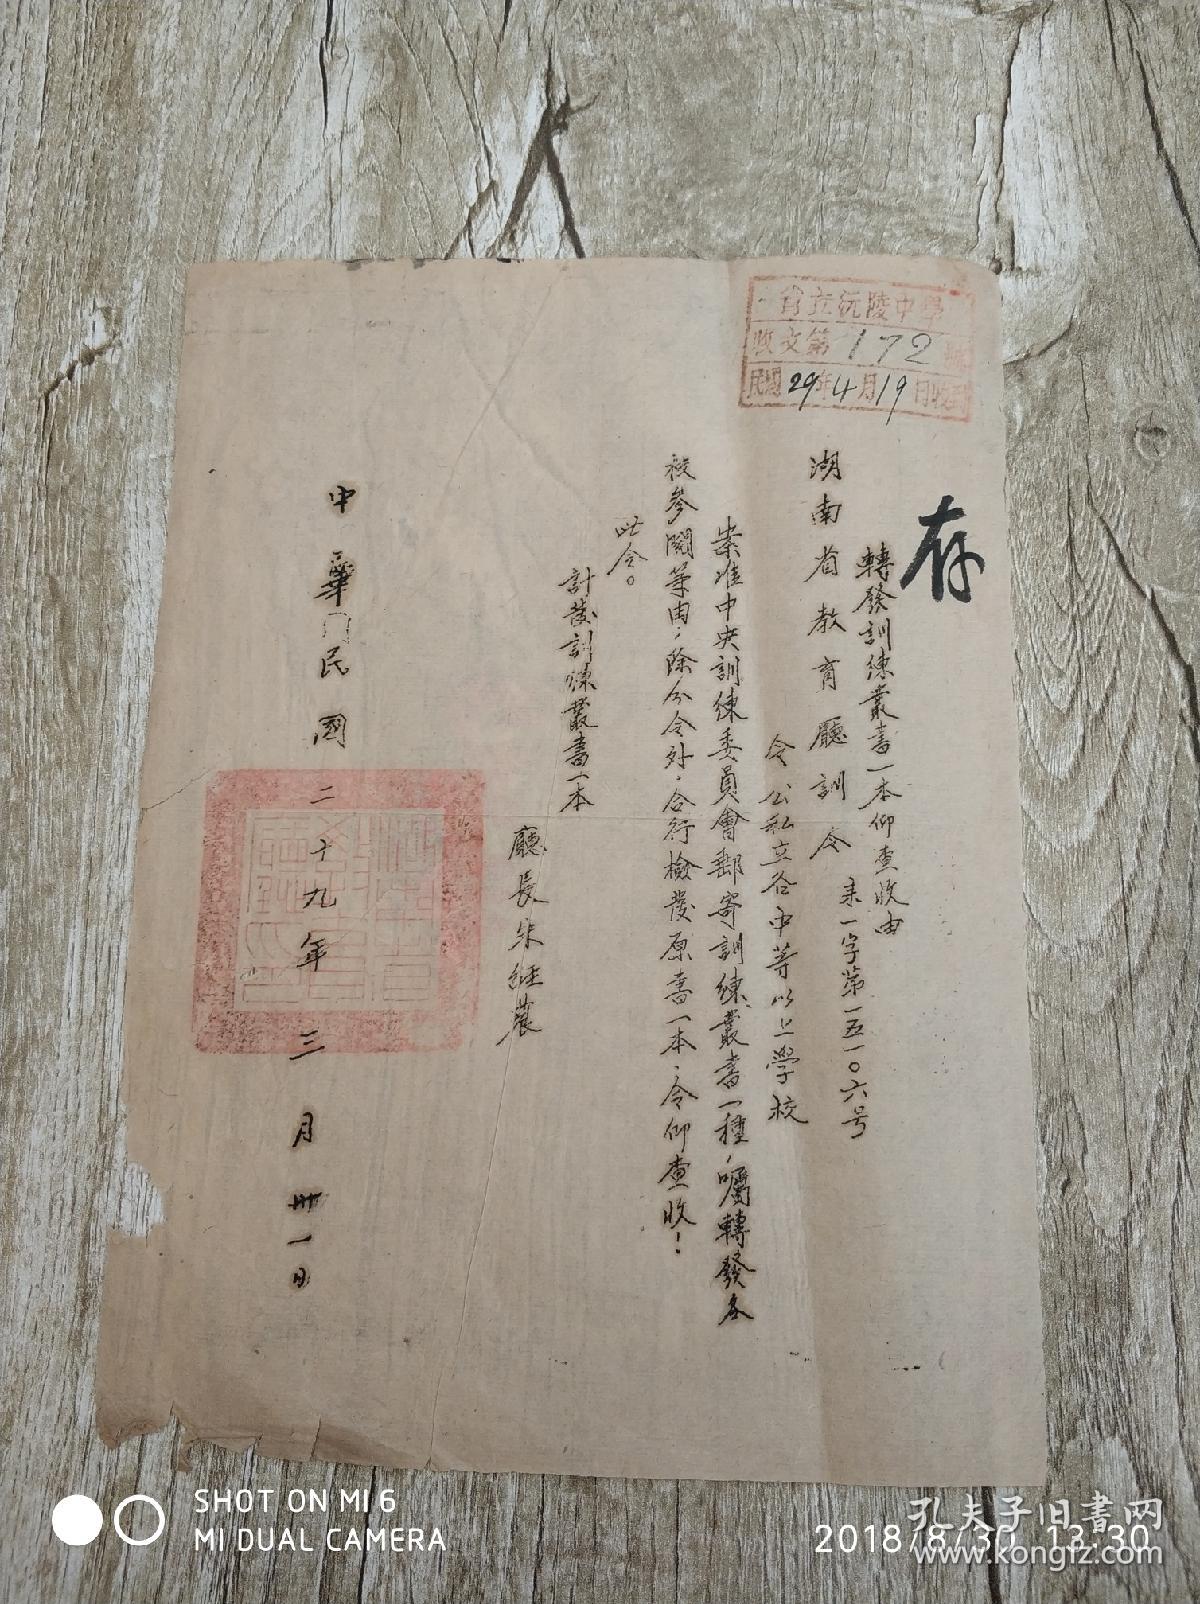 省立沅陵中學
收文第172號
民國29年4月19日收到
存
轉發訓練叢書一本仰查收由
湖南省教育廳訓令
一字第一五一〇六号
令公私立各中等以上學校
案准中央訓練委員會郵寄訓練叢書一種，囑轉發各
校參閱等由；除分令外，合行檢發原書一本，令仰查收！
此令。
計發訓練叢書一本
廳長朱經農
中華民國二十九年三月卅一日
SHOT ON MI 6
MI DUAL CAMERA
2018/8/30 13:30
孔夫子旧书网
www.kongfz.com